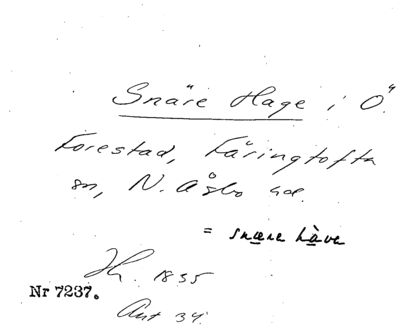 Snäre Hage i Ö.
Forestad, Färingtofta
sn, N. Åsbo hd.
= snære håva
Jh. 1835
Nr 7237.
Ant 34.